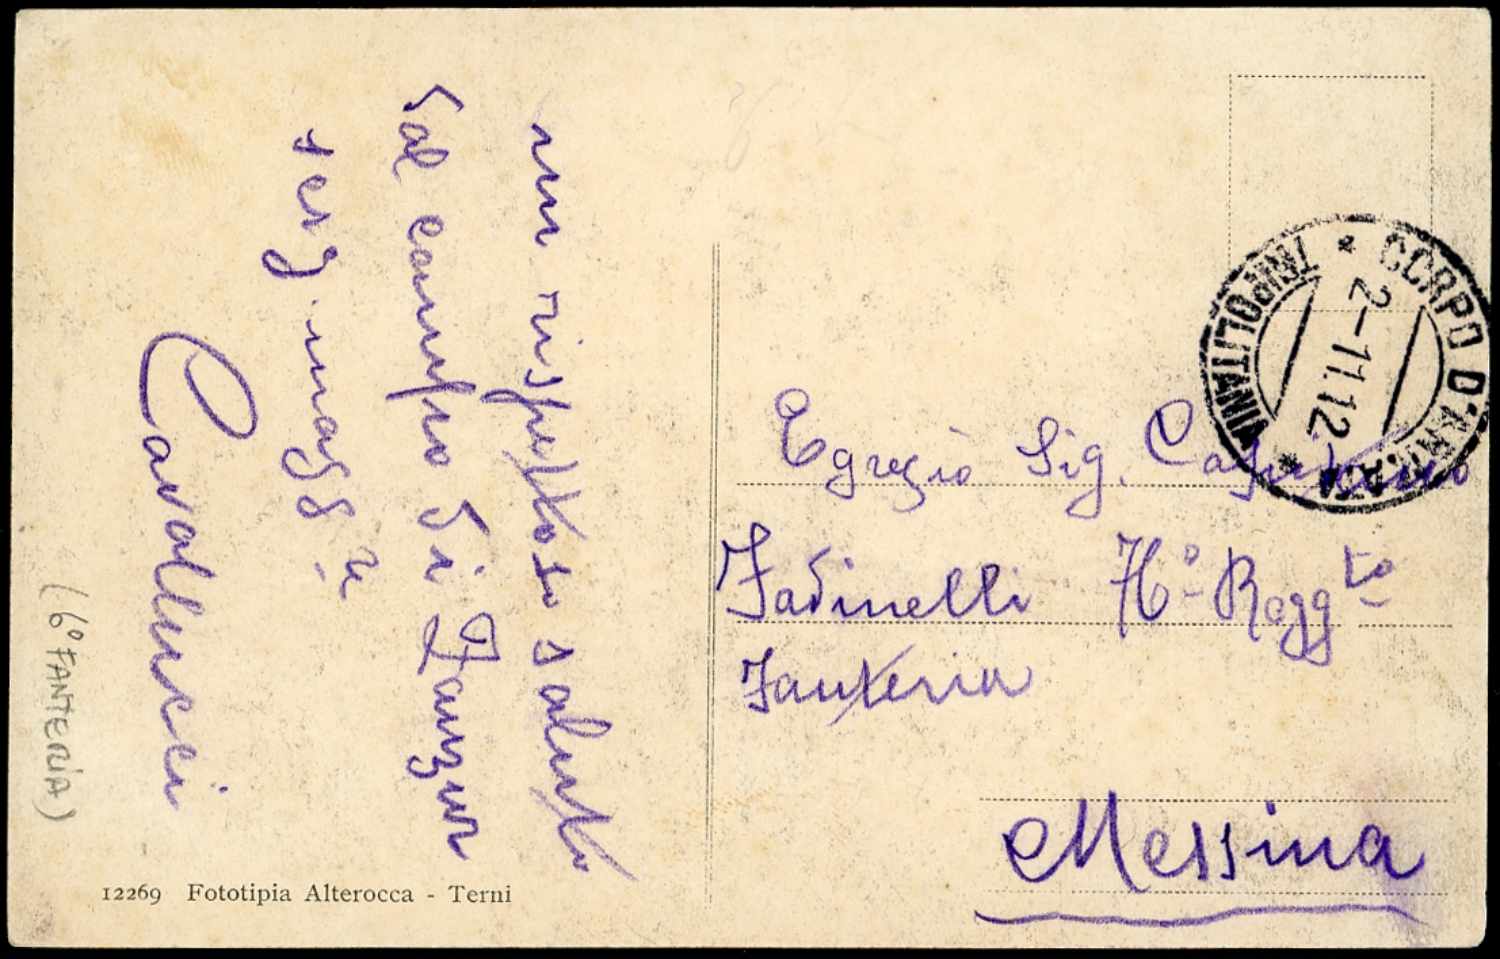 un rispettoso saluto
dal campo di Zanzur
serg. magg.
Cavallucci
(6° FANTERIA)
12269 Fototipia Alterocca - Terni
CORPO D'ARMATA TRIPOLITANIA
2-11.12
Egregio Sig. Capitano
Fadinelli Regg.to
Fanteria
Messina